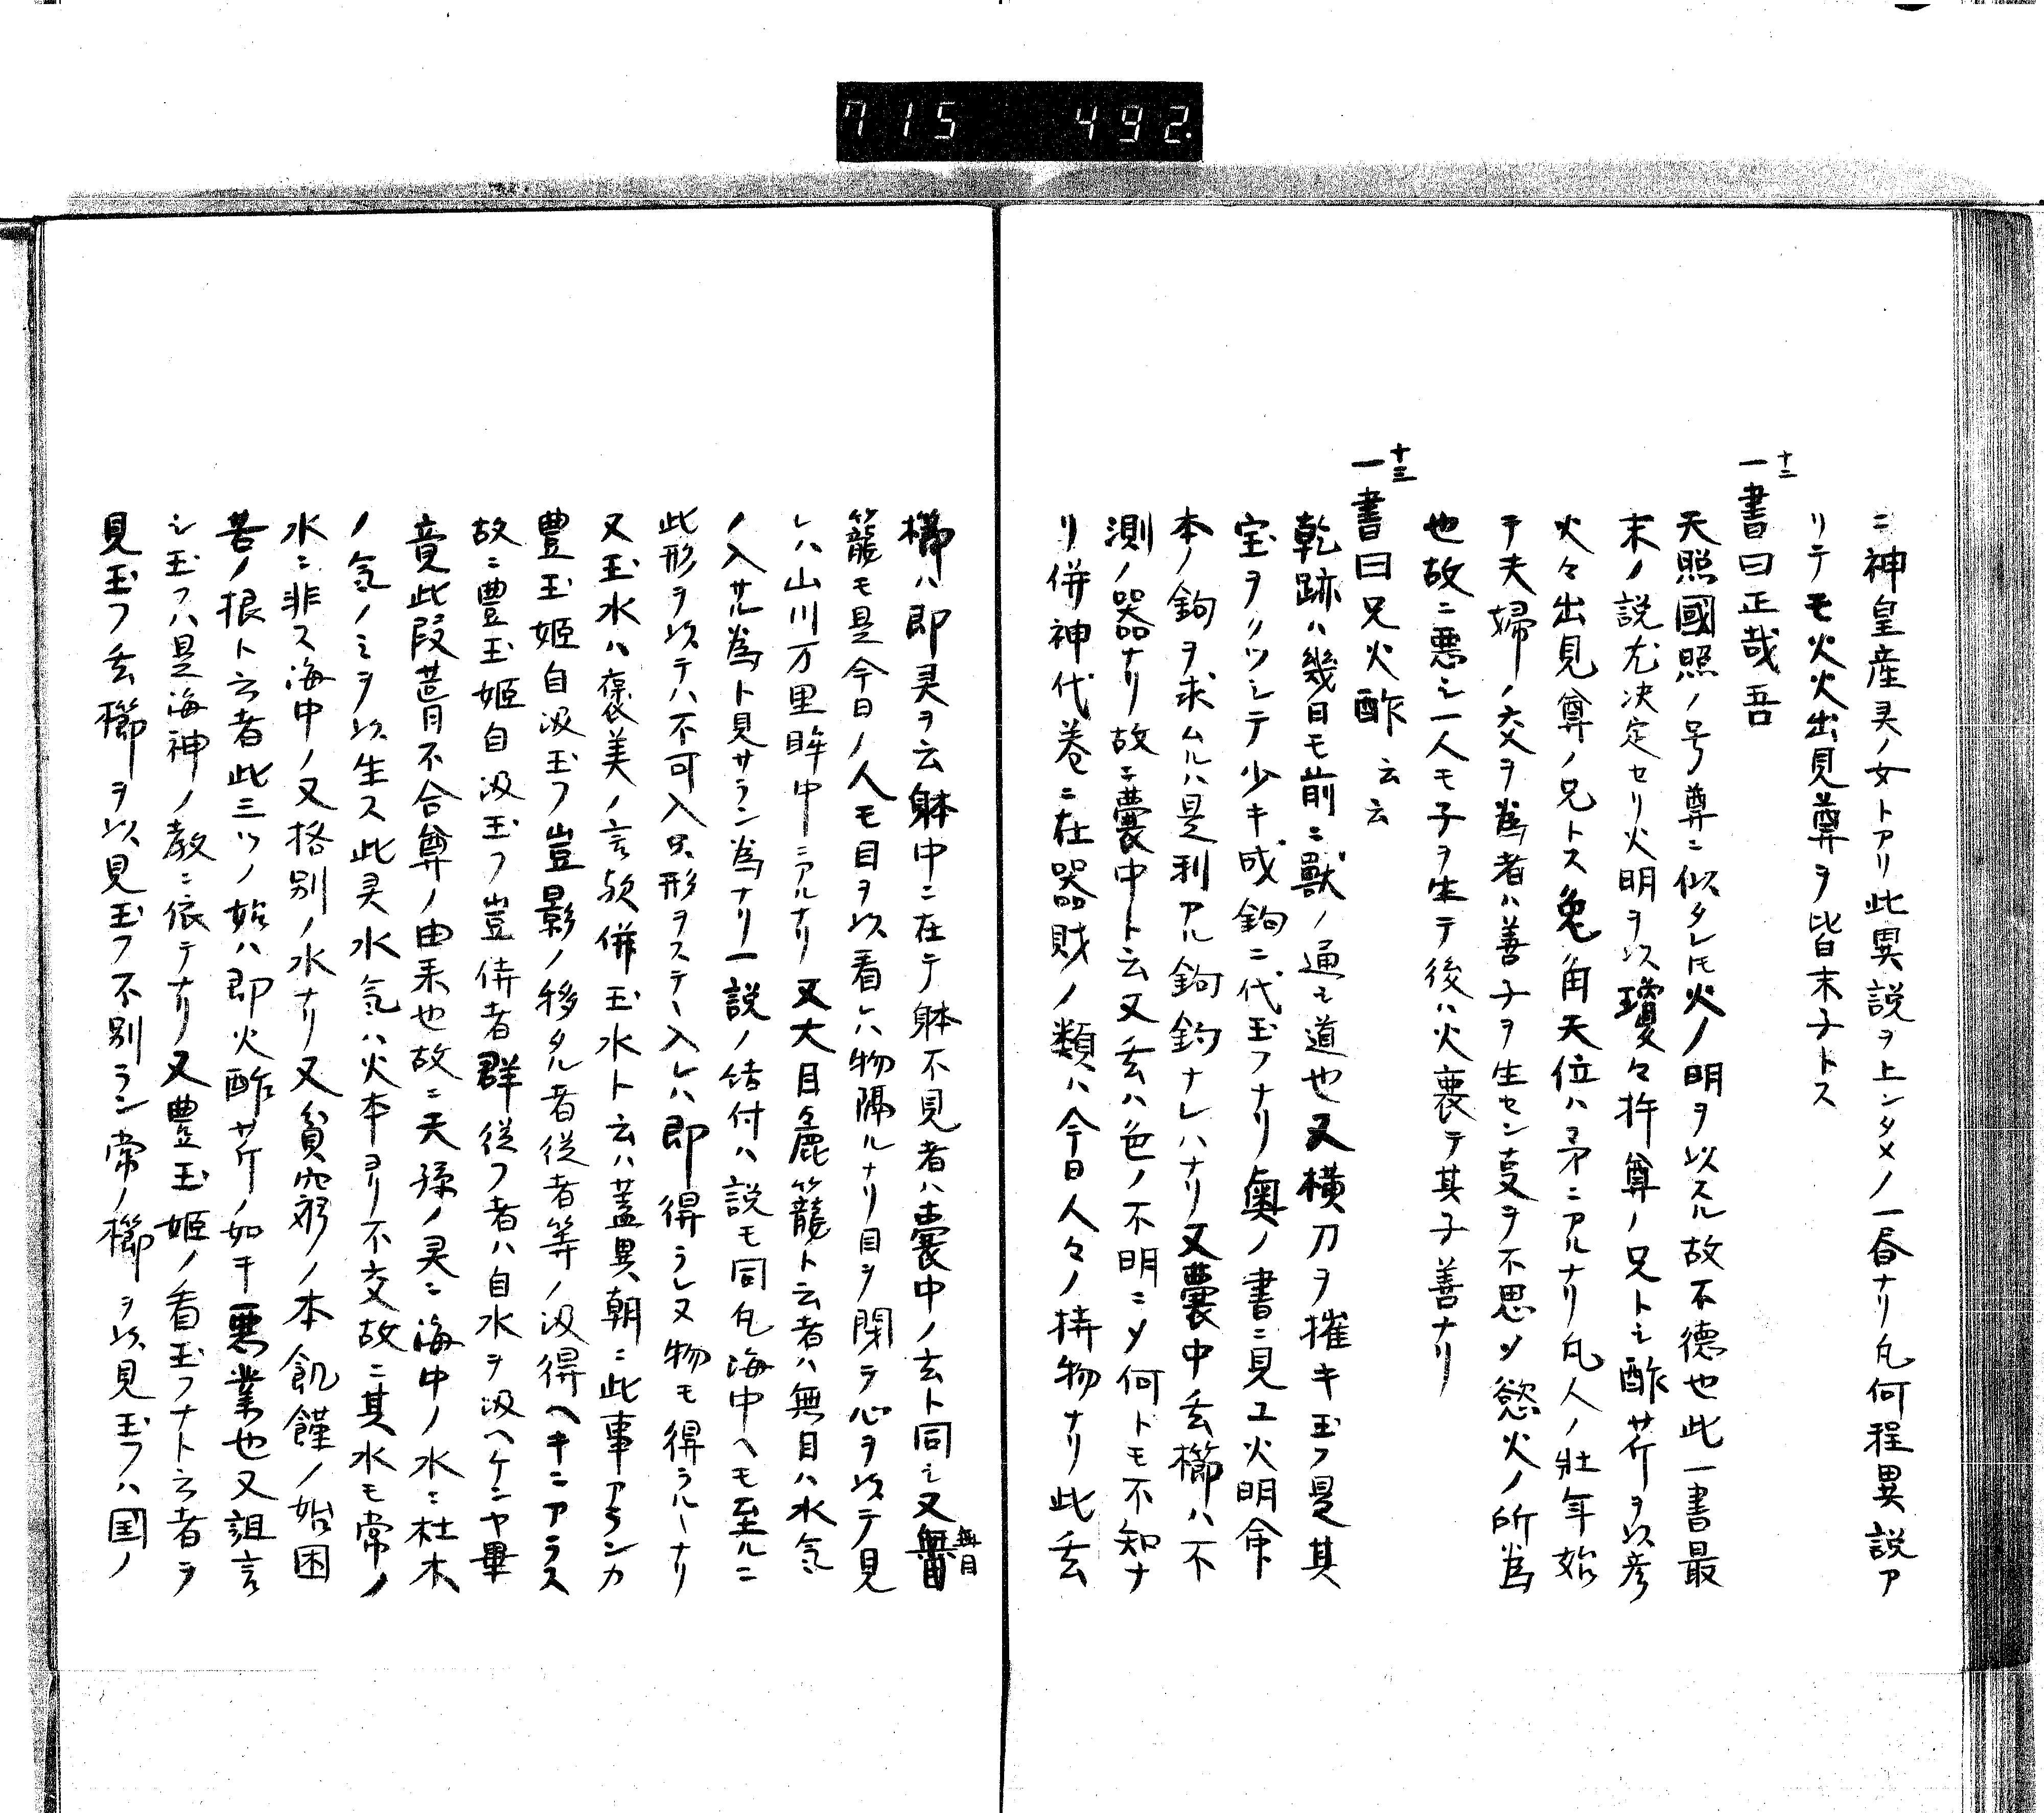 715 492.
ニ神皇産灵ノ女トアリ此異説ヲ上ンタメノ一書ナリ凡何程異説ア
リテモ火火出見尊ヲ皆末子トス
十二
一書曰正哉吾
天照國照ノ号尊ニ似タレ𪜈火ノ明ヲ以スル故不徳也此一書最
末ノ説尤决定セリ火明ヲ以瓊々杵尊ノ兄トシ酢芹ヲ以彦
火々出見尊ノ兄トス兔角天位ハ矛ニアルナリ凡人ノ壮年始
テ夫婦ノ交ヲ為者ハ善子ヲ生セン㕝ヲ不思ソ慾火ノ所為
也故ニ悪シ一人モ子ヲ生テ後ハ火衰テ其子善ナリ
十三
一書曰兄火酢云云
乾跡ハ幾日モ前ニ獣ノ通モ道也又横刀ヲ摧キ玉フ是其
宝ヲツツシテ少キ成鉤ニ代玉フナリ奥ノ書ニ見ユ火明命
本ノ鉤ヲ求ムルハ是利アル鉤釣ナレハナリ又嚢中玄櫛ハ不
測ノ器ナリ故ニ嚢中ト云又玄ハ色ノ不明ニソ何トモ不知ナ
リ併神代巻ニ在器財ノ類ハ今日人々ノ持物ナリ此玄
櫛ハ即灵ヲ云躰中ニ在テ躰不見者ハ嚢中ノ玄ト同シ又無目
無目
籠モ是今日ノ人モ目ヲ以看ハ物隔ルナリ目ヲ閉テ心ヲ以テ見
レハ山川万里眸中ニアルナリ又大目麁籠ト云者ハ無目ハ水氣
ノ入サル為ト見サラン為ナリ一説ノ結付ハ説モ同凡海中ヘモ至ルニ
此形ヲ以テハ不可入只形ヲステヽ入レハ即得ラレ又物モ得ラルヽナリ
又玉水ハ褒美ノ言欤併玉水ト云ハ蓋異朝ニ此事アランカ
豊玉姫自汲玉フ豈影ノ移タル者従者等ノ汲得ヘキニアラス
故ニ豊玉姫自汲玉フ豈侍者群従フ者ハ自水ヲ汲ヘケンヤ畢
竟此段葺不合尊ノ由来也故ニ天孫ノ灵ニ海中ノ水ニ杜木
ノ氣ノミヲ以生ス此灵水氣ハ火本ヨリ不交故ニ其水モ常ノ
水ニ非ス海中ノ又格別ノ水ナリ又貧窮ノ本飢饉ノ始困
苦ノ根ト云者此三ツノ始ハ即火酢芹ノ如キ悪業也又詛言
シ玉フハ是海神ノ教ニ依テナリ又豊玉姫ノ看玉フナト云者ヲ
見玉フ玄櫛ヲ以見玉フ不別ラン常ノ櫛ヲ以見玉フハ国ノ